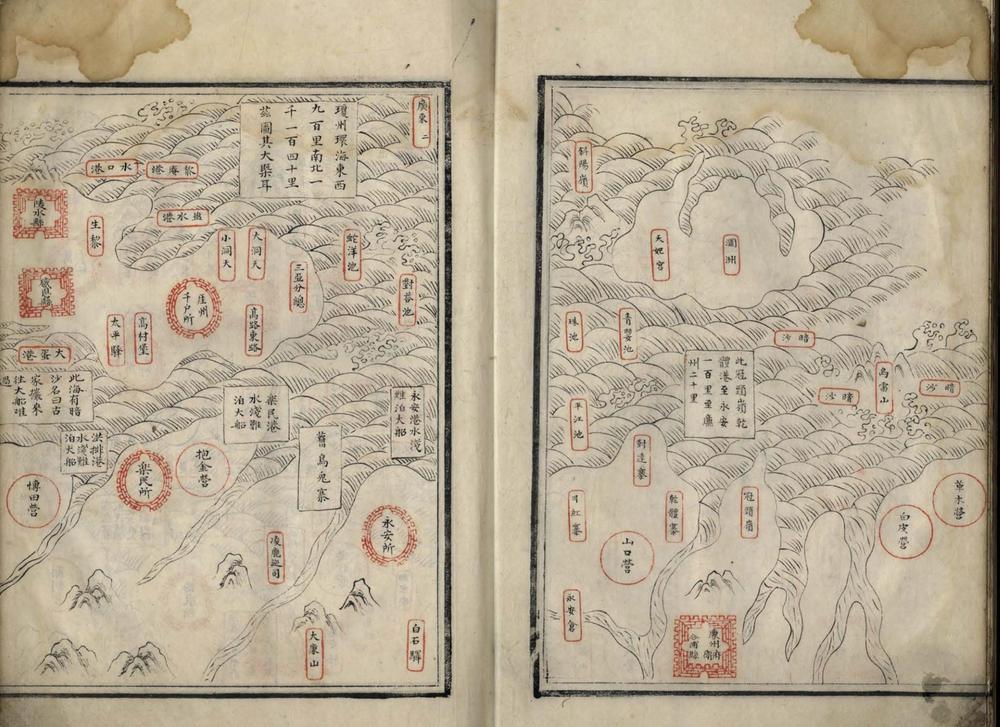 斜陽嶺
天妃宮
潿洲
珠池
青嬰池
暗沙
烏雷山
暗沙
暗沙
此冠頭嶺乾
體港至永安
一百里至廉
州二十里
平江池
對達寨
乾體寨
冠頭嶺
山口營
白皮營
永安倉
廉州府
衛
合浦縣
廣東二
瓊州環海東西
九百里南北一
千一百四十里
茲圖其大槩耳
水口港
黎庵港
陵水縣
生黎
感恩縣
大洞天
小洞天
蛇洋池
三亞分總
對蓉池
崖州
千戶所
高路東路
高村堡
太平驛
大蛋港
此海有暗
沙名曰古
往大船難
洪排港
水淺難
泊大船
楽民港
水淺難
泊大船
永安港水淺
難泊大船
舊烏兎寨
博田營
楽民所
抱金營
永安所
凌鹿巡司
大廉山
白石驛